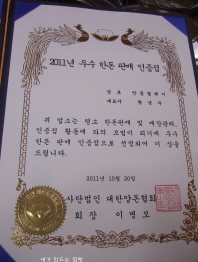 2011년 우수 한돈 판매 인증점
상 호
대표자
위 업소는 평소 한돈판매 및 매장관리,
인증점 활동에 타의 모범이 되기에 우수
한돈 판매 인증점으로 선정되어 이 상을
드립니다.
2011년 10월 20일
사단법인 대한양돈협회
회 장 이 병 모